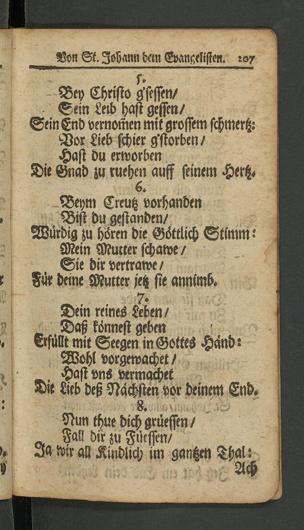 Von St. Johann dem Evangelisten. 207
5.
Bey Christo g'sessen/
Sein Leib hast gessen/
Sein End vernom̃en mit grossem schmertz:
Vor Lieb schier g'storben/
Hast du erworben
Die Gnad zu ruehen auff seinem Hertz.
6.
Beym Creutz vorhanden
Bist du gestanden/
Würdig zu hören die Göttlich Stimm:
Mein Mutter schawe/
Sie dir vertrawe/
Für deine Mutter jetz sie annimb.
7.
Dein reines Leben/
Daß könnest geben
Erfüllt mit Seegen in Gottes Händ:
Wohl vorgewachet/
Hast vns vermachet
Die Lieb deß Nächsten vor deinem End.
8.
Nun thue dich grüessen/
Fall dir zu Füessen/
Ja wir all Kindlich im gantzen Thal:
Ach